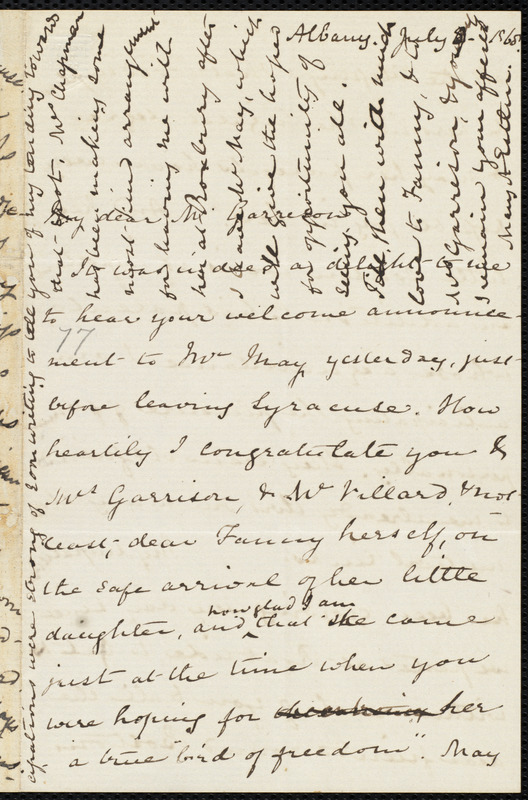 Albany. July 186
My dear Mr. Garrison,
It was indeed a delight to me
to hear your welcome announce-
77
ment to Mr. May, yesterday, just
before leaving Syracuse. How
heartily I congratulate you &
Mrs. Garrison, & Mr. Villard, & not
least, dear Fanny herself, on
the safe arrival of her little
how glad I am
daughter, and that she came
just at the time when you
were hoping for her
a true "bird of freedom". May
were strong of writing to tell you of my tending towards
that spot. Mrs Chapman
has been making some
most kind arrangement
for having me with
her at Roxbury after
May, which
will give the hopes
for opportunity of
seeing you all.
Till then with much
love to Fanny, & to
Mrs Garrison, &
I remain your affect
Mary A Estlin.